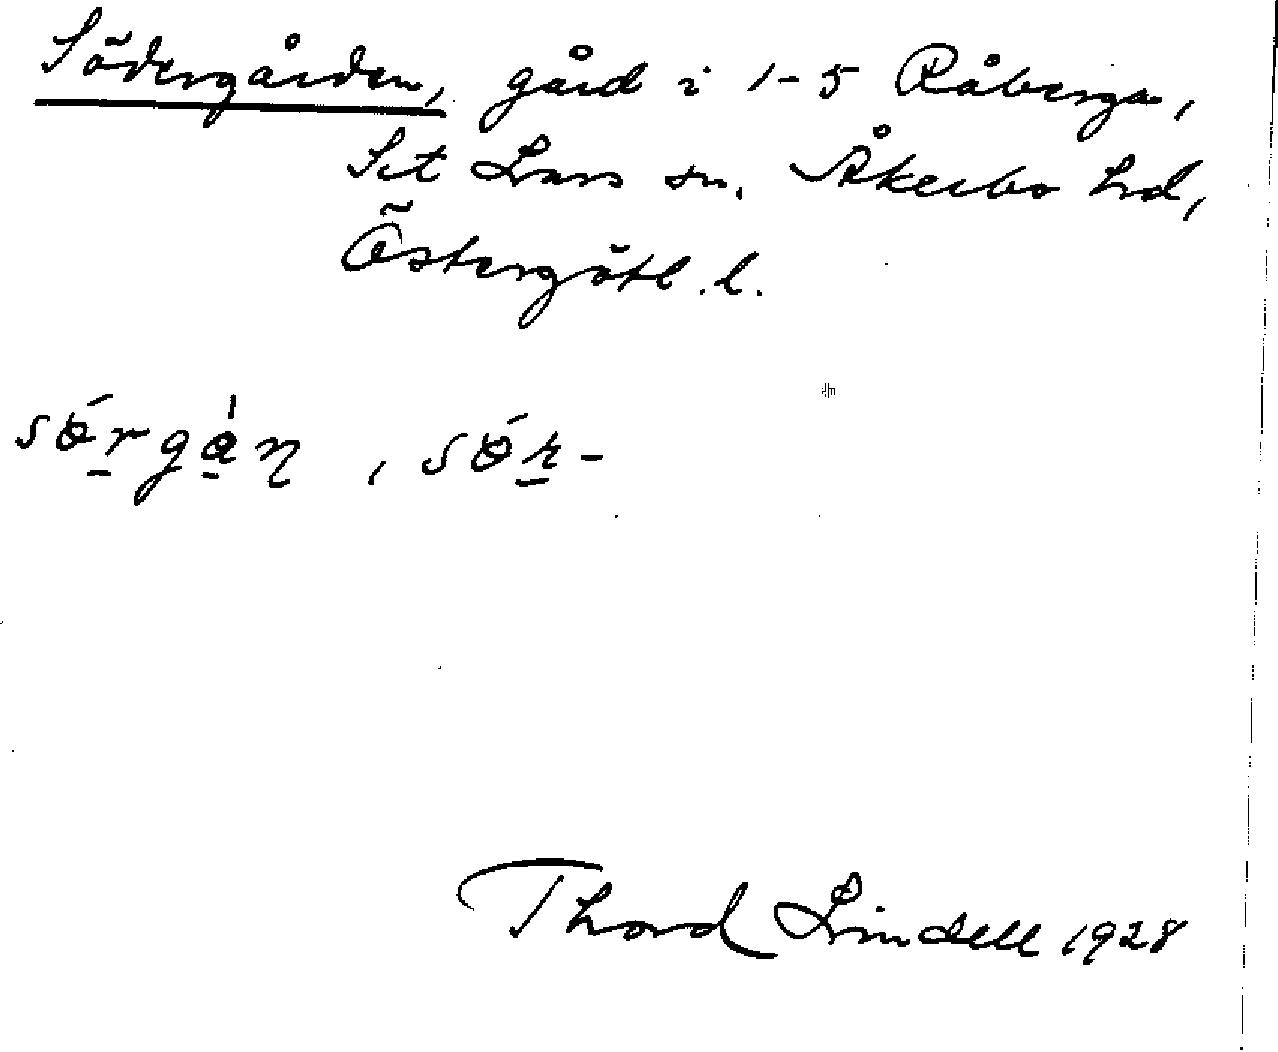 Södergården, gård i 1-5 Råberga,
S:t Lars sn. Åkerbo hd,
Östergötl. l.
sɵ́rgàn, sɵ́r-
Thord Lindell 1928